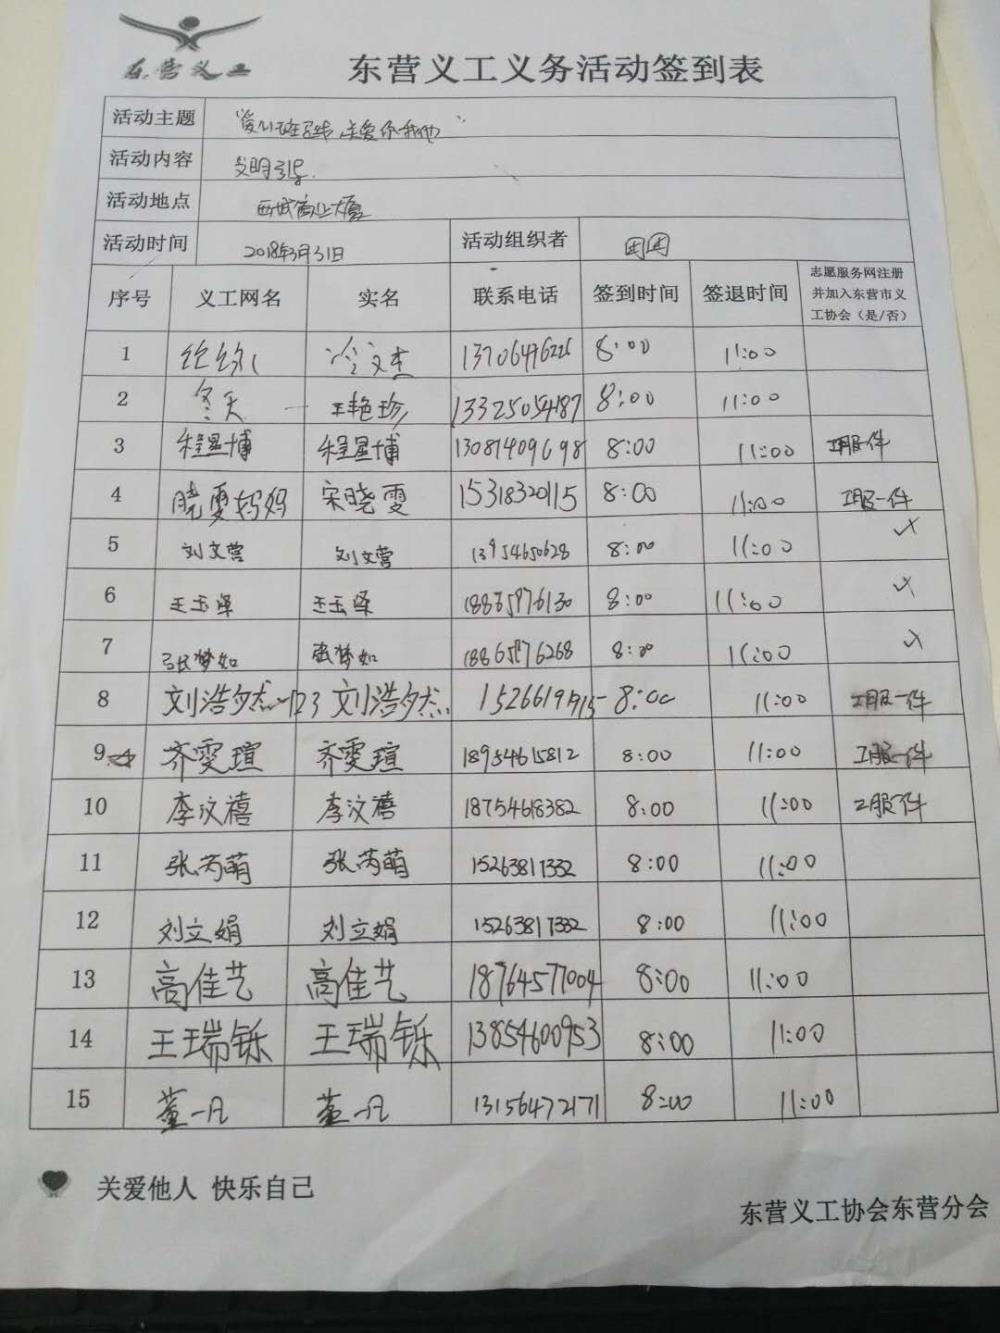 东营义工
东营义工义务活动签到表
活动主题
活动内容 文明引导.
活动地点 西城商业大厦
活动时间 2018年3月31日 活动组织者 团团
序号 义工网名 实名 联系电话 签到时间 签退时间 志愿服务网注册并加入东营市义工协会（是/否）
1 冷文杰 13706476226 8:00 11:00
2 冬天 王艳珍 13325054187 8:00 11:00
3 程显博 程显博 13081409698 8:00 11:00 工服一件
4 晓雯妈妈 宋晓雯 15318320115 8:00 11:00 工服一件
5 刘文营 刘文营 13954650628 8:00 11:00 ✓
6 王玉泽 王玉泽 18865976130 8:00 11:00 ✓
7 张梦如 张梦如 18865876268 8:00 11:00 ✓
8 刘浩然 刘浩然 8:00 11:00 工服一件
9 齐雯瑄 齐雯瑄 18954615812 8:00 11:00 工服一件
10 李汶禧 李汶禧 18754618382 8:00 11:00 工服一件
11 张芮萌 张芮萌 15263817332 8:00 11:00
12 刘立娟 刘立娟 15263817332 8:00 11:00
13 高佳艺 高佳艺 18764577004 8:00 11:00
14 王瑞铄 王瑞铄 13854600953 8:00 11:00
15 董一凡 董一凡 13156472171 8:00 11:00
关爱他人 快乐自己
东营义工协会东营分会